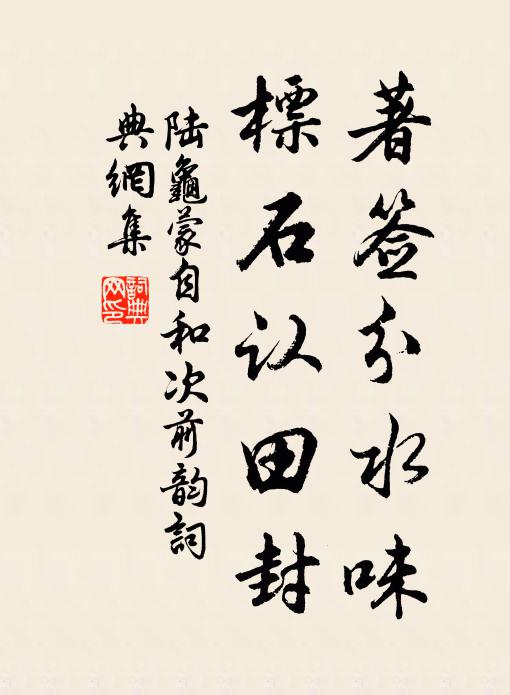 著签分水味
標石认田封
陆龜蒙自和次前韵詞
典網集
詞典网印